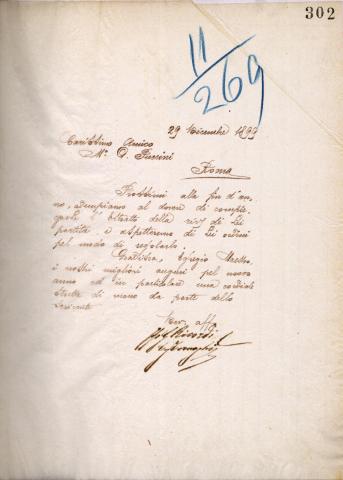 302
11/269
29 Dicembre 1899
Carissimo Amico
M.o G. Puccini
Roma
Prossimi alla fin d'an-
no, adempiamo al dovere di compie-
garle l'Estratto della riv. di Lei
partita e aspetteremo di Lei ordini
pel modo di regolarlo.
Gradisca, Egregio Maestro
i nostri migliori auguri pel nuovo
anno ed in particolare una cordiale
stretta di mano da parte dello
scrivente
aff
Ricordi